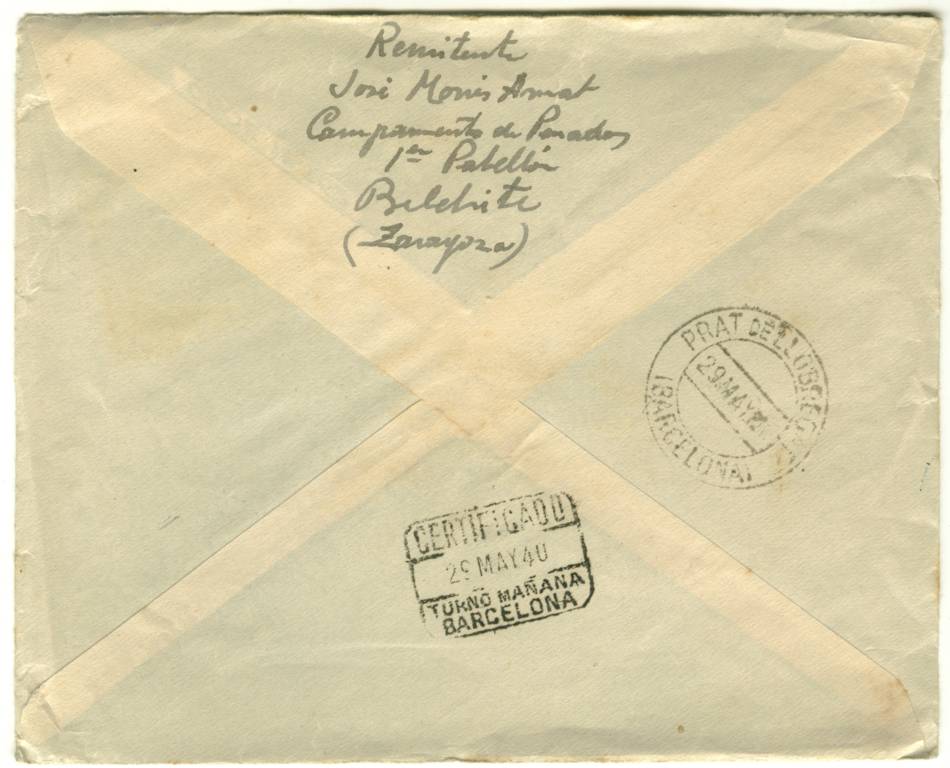 Remitente
José Monís Amat
Campamento de Penados
1er Pabellón
Belchite
(Zaragoza)
PRAT DE LLOBREGAT
29 MAY 40
(BARCELONA)
CERTIFICADO
29 MAY 40
TURNO MAÑANA
BARCELONA